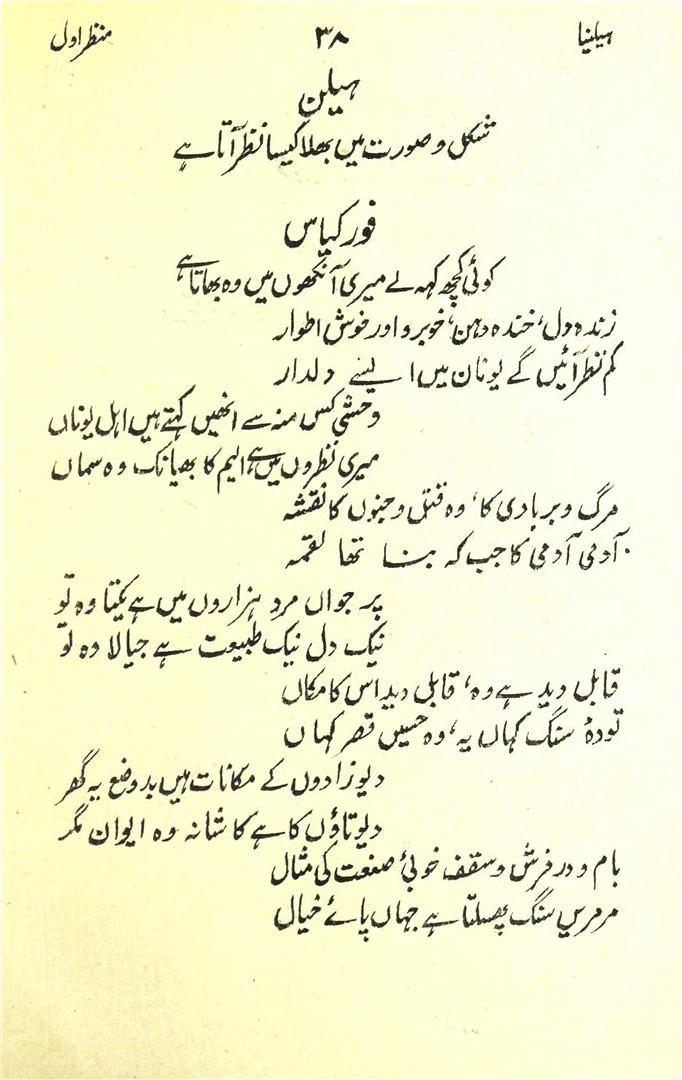 ہیلینا ۳۸ منظر اول
ہیلن
شکل و صورت میں بھلا کیسا نظر آتا ہے
فورکیاس
کوئی کچھ کہہ لے میری آنکھوں میں وہ بھاتا ہے
زندہ دل، خندہ دہن، خوبرو اور خوش اطوار
کم نظر آئیں گے یونان میں ایسے دلدار
وحشی کس منہ سے انھیں کہتے ہیں اہل یوناں
میری نظروں میں ہے الیم کا بھیانک وہ سماں
مرگ و بربادی کا، وہ قتل و جنوں کا نقشہ
آدمی آدمی کا جب کہ بنا تھا لقمہ
پر جواں مرد ہزاروں میں ہے یکتا وہ تو
نیک دل نیک طبیعت ہے جیالا وہ تو
قابل دید ہے وہ، قابل دید اس کا مکاں
تودۂ سنگ کہاں یہ، وہ حسیں قصر کہاں
دیوزادوں کے مکانات ہیں بدوضع یہ گھر
دیوتاؤں کا ہے کاشانہ وہ ایوان مگر
بام و در فرش و سقف خوبیٔ صنعت کی مثال
مرمریں سنگ پھسلتا ہے جہاں پائے خیال